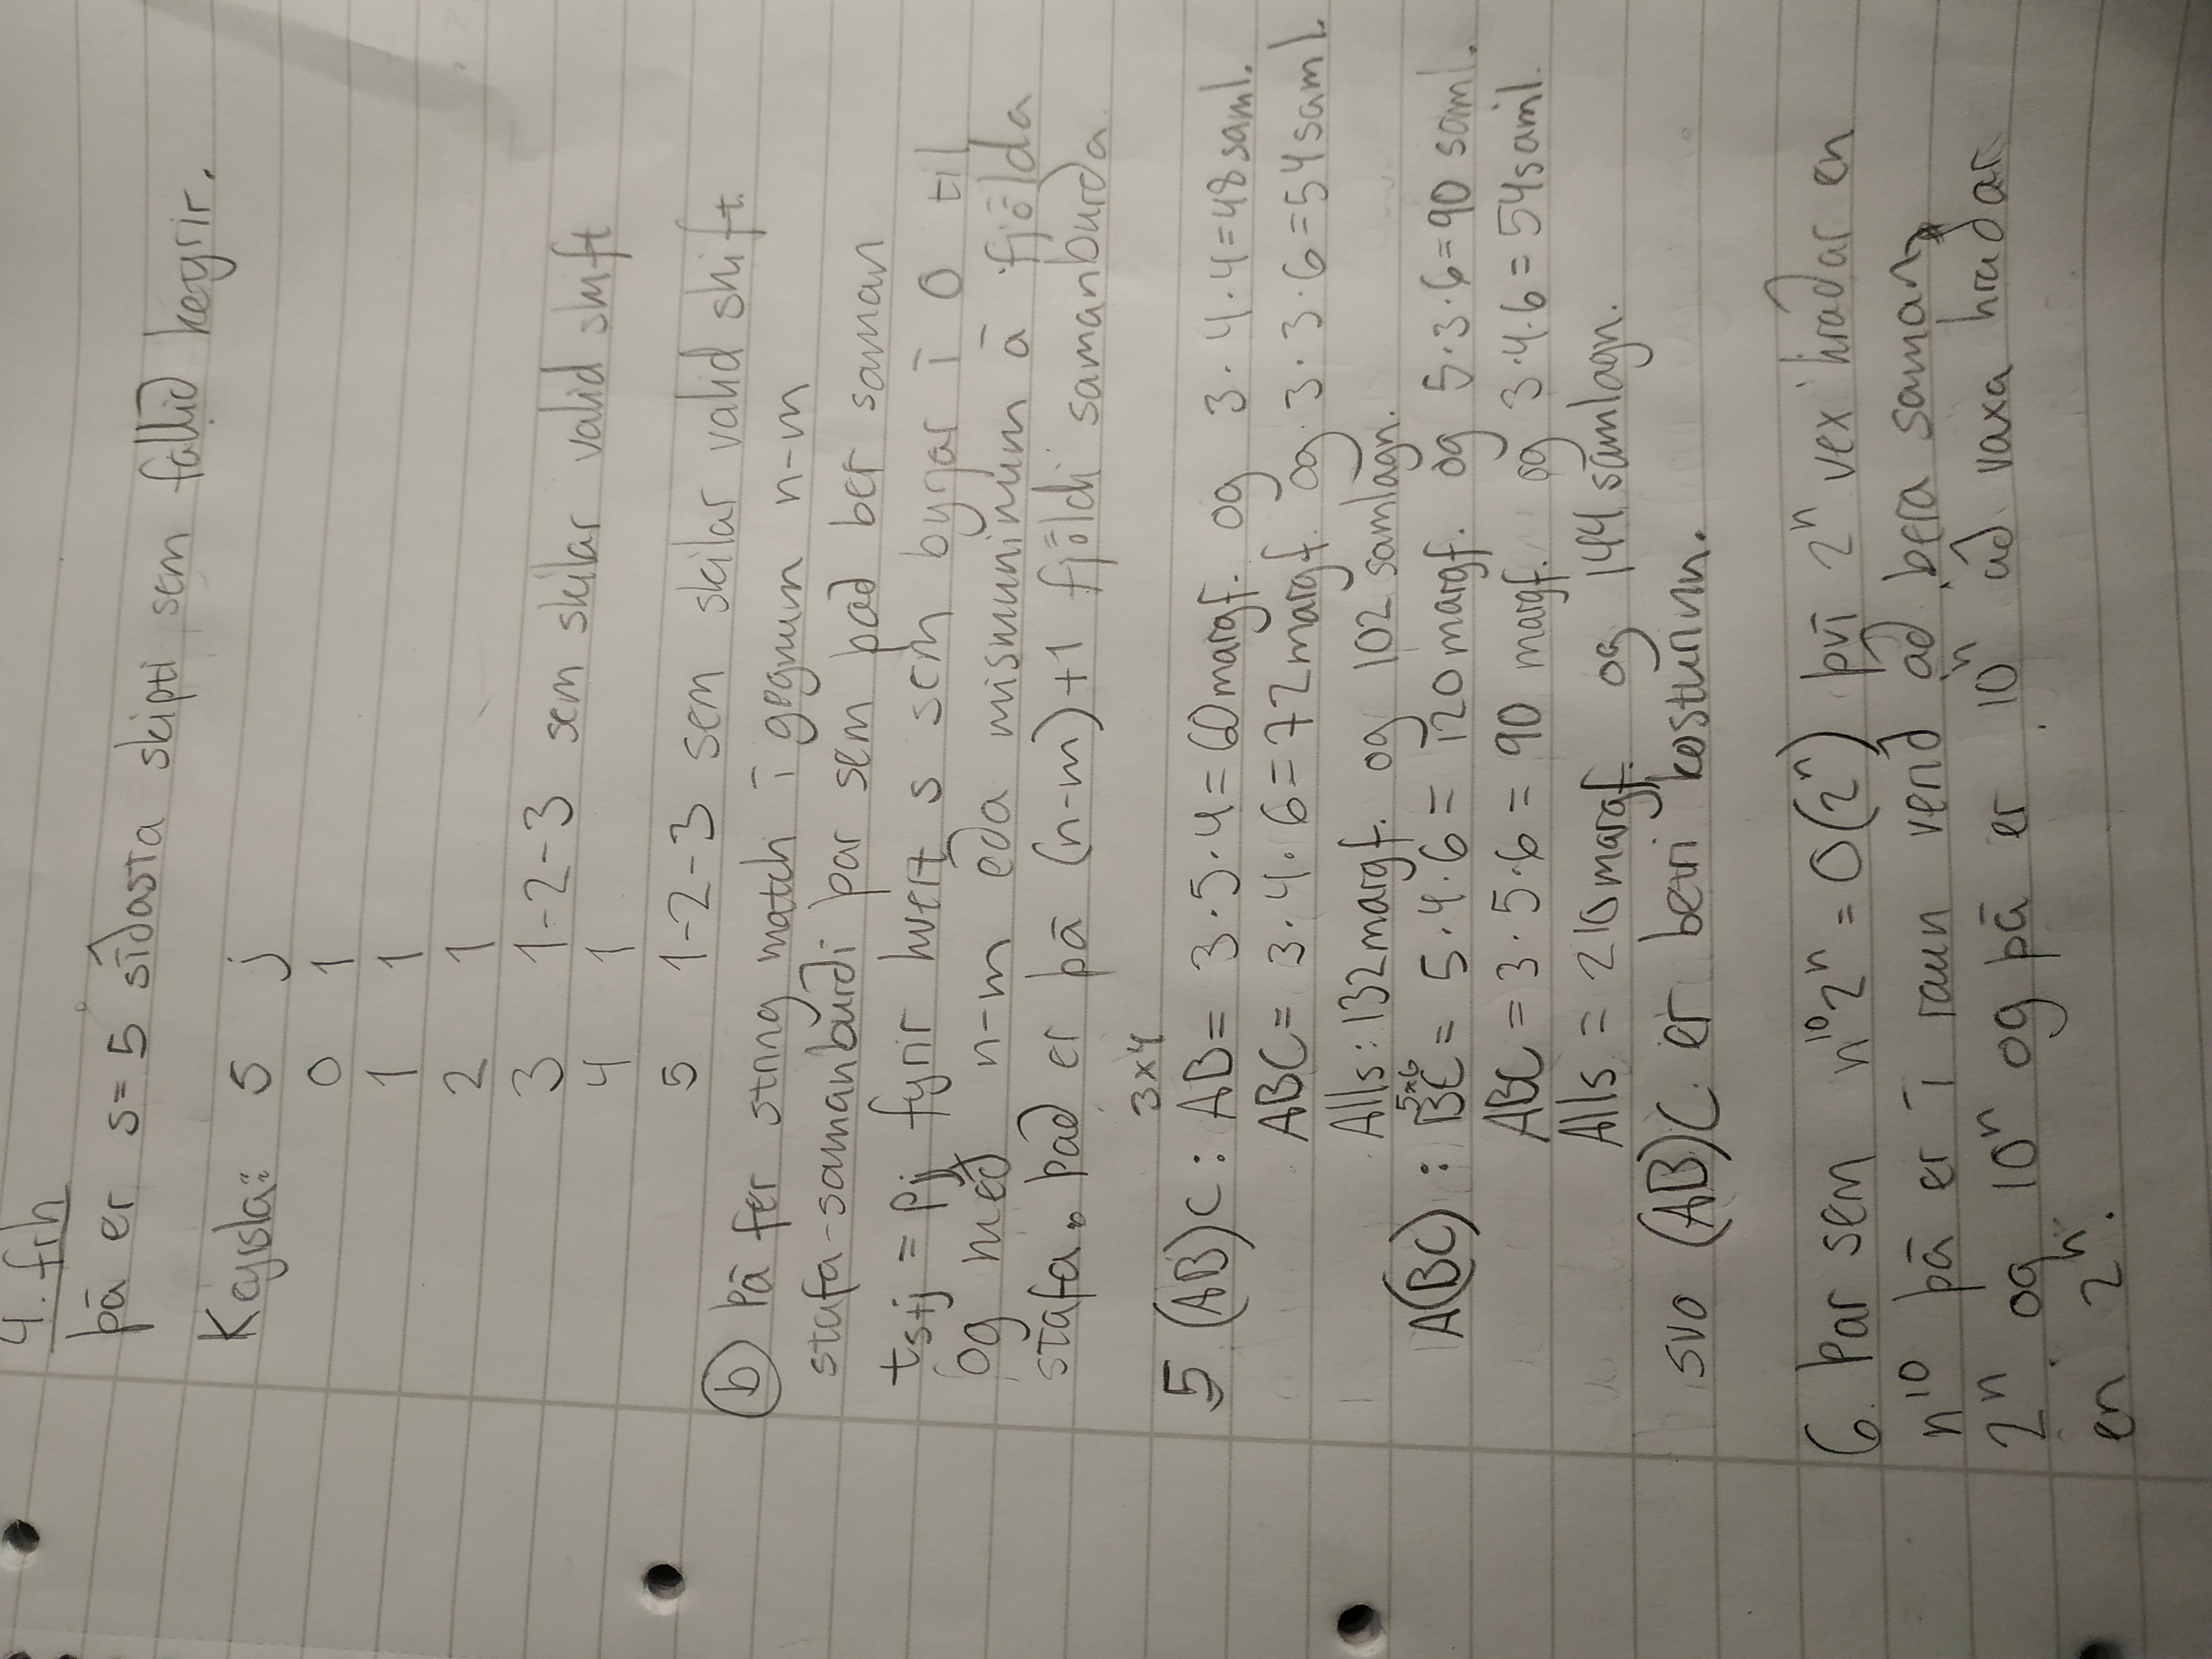 4. frh
þá er s= 5 síðasta skipti sem fallið keyrir.
Keyrsla: S j
0 1
1 1
2 1
3 1-2-3 sem skilar valid shift
4 1
5 1-2-3 sem skilar valid shift.
b Þá fer string match í gegnum n-m
stafa-samanburði þar sem það ber saman
t_{s+j} = p_j fyrir hvert s sem byrjar í 0 til
og með n-m eða mismuninum á fjölda
stafa. Það er þá (n-m)+1 fjöldi samanburða
3x4
5 (AB)C : AB= 3·5·4=60margf. og 3·4·4=48saml.
ABC= 3·4·6=72margf. og 3·3·6=54saml.
Alls: 132margf. og 102 samlagn.
5x6
A(BC) : BC= 5·4·6= 120margf. og 5·3·6=90 saml.
ABC = 3·5·6= 90 margf. og 3·4·6=54saml.
Alls = 210margf. og 144 samlagn.
svo (AB)C er betri kosturinn.
6. Þar sem n¹⁰2ⁿ = O(2ⁿ) því 2ⁿ vex hraðar en
n¹⁰ þá er í raun verið að bera saman
2ⁿ og 10ⁿ og þá er 10ⁿ að vaxa hraðar
en 2ⁿ.